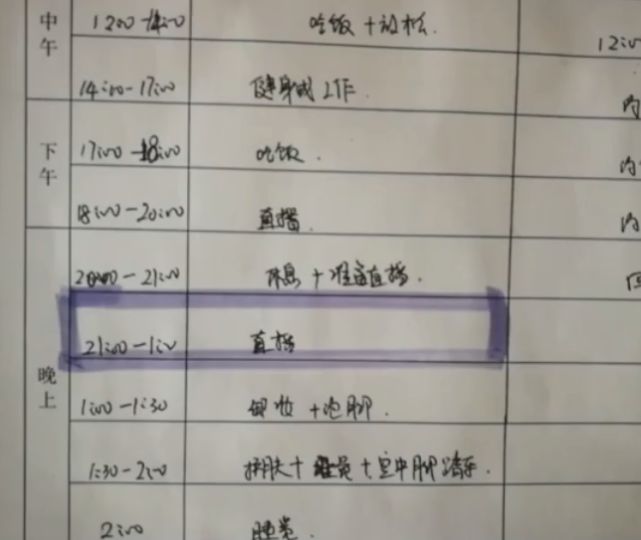 中午
12:00-14:00 吃饭+放松.
14:00-17:00 健身或工作.
下午
17:00-18:00 吃饭.
18:00-20:00 直播.
晚上
20:00-21:00 休息+准备直播.
21:00-1:00 直播
1:00-1:30 卸妆+泡脚.
1:30-2:00 护肤+
+空中脚踏车.
2:00 睡觉.
12:00
内
内
内